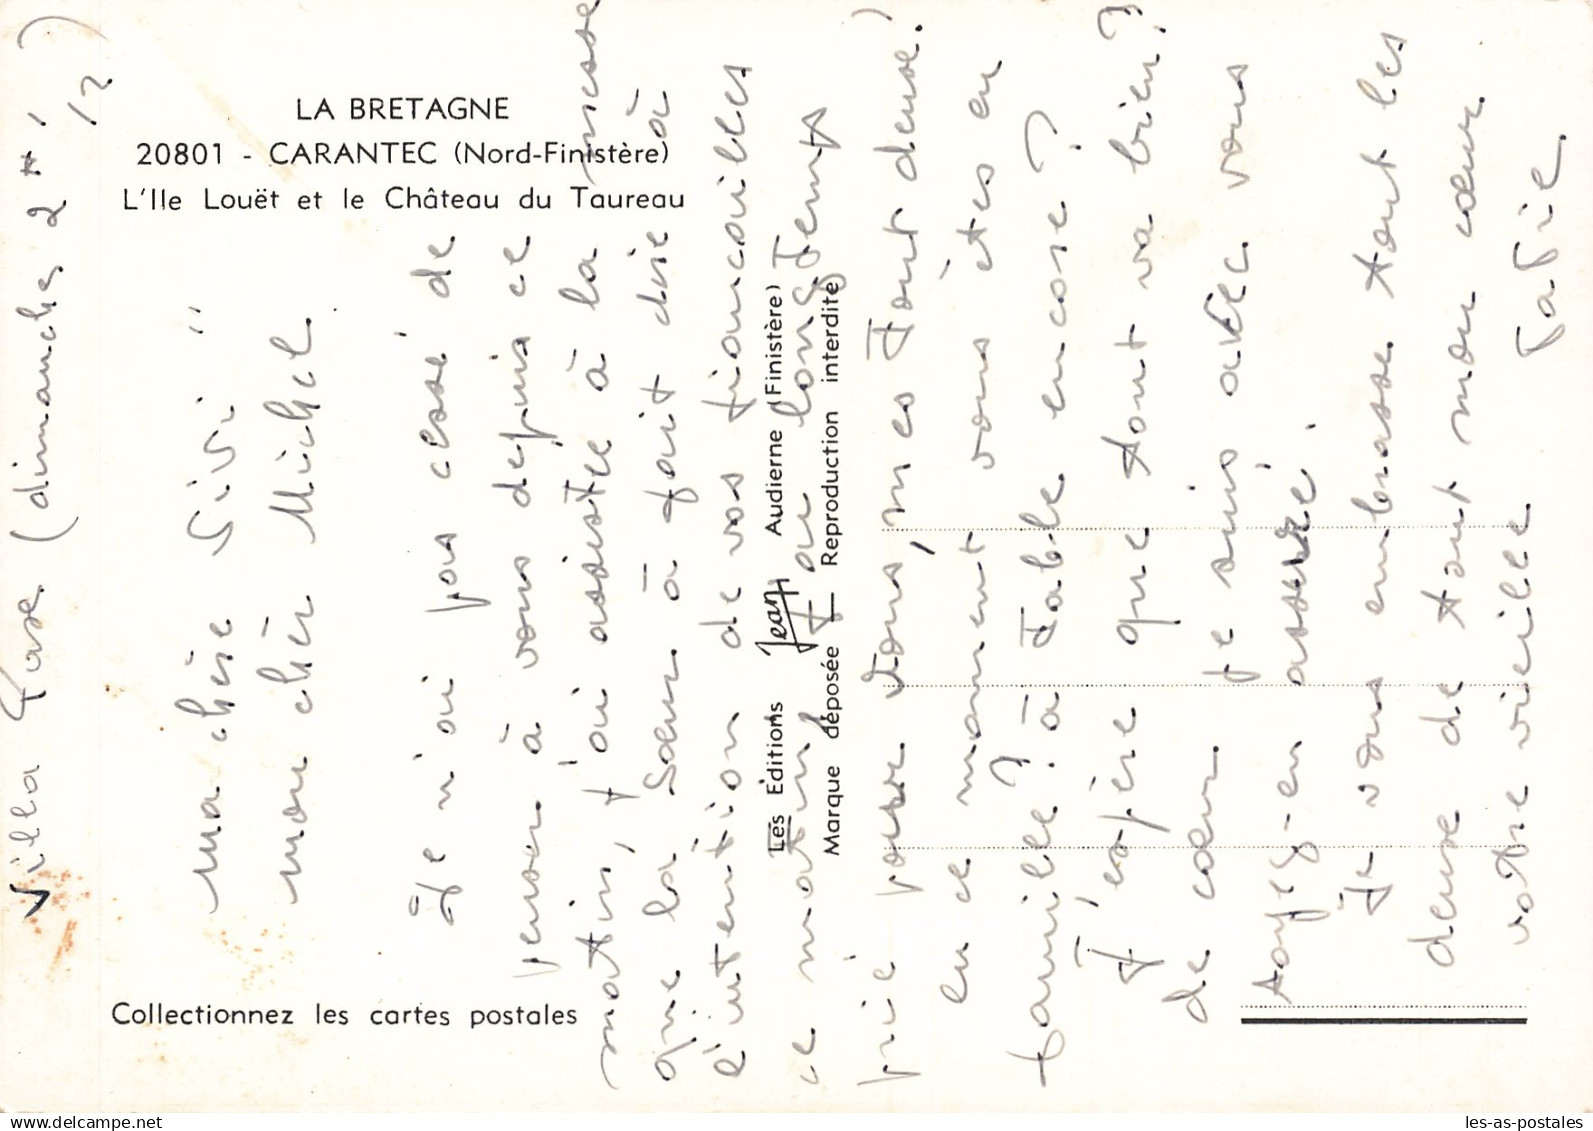 LA BRETAGNE
20801 - CARANTEC (Nord-Finistère)
L'Ile Louët et le Château du Taureau
Les Editions Jean Audierne (Finistère)
Marque déposée Reproduction interdite
Collectionnez les cartes postales
Villa (dimanche, 2
12
ma chère Sivi
mon cher Michel
Je n'ai pas cessé de
penser à vous depuis ce
matin, j'ai assistée à la messe
que la Sœur à fait dire à
l'intention de vos fiancailles
ce matin, J'ai longtemps
prié pour vous, mes Tout deuse!
en ce moment vous êtes en
famille? à Table encore?
J'espère que tout va bien?
de cœur je suis avec vous
soyez-en assuré.
Je vous embrasse tout les
deuse de tout mon cœur
votre vieille Tatie
les-as-postales